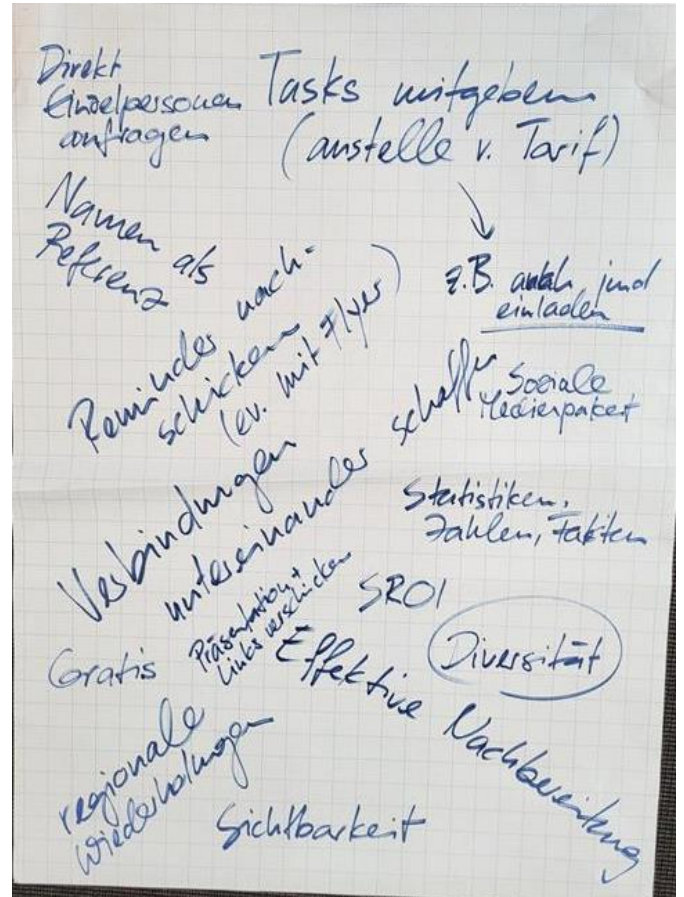 Direkt
Einzelpersonen
anfragen
Tasks mitgeben
(anstelle v. Tarif)
Namen als
Referenz
z.B. jmd
einladen
Reminder nach-
schicken
(ev. mit Flyer)
Soziale
Medienpaket
Verbindungen
untereinander schaffen
Statistiken,
Zahlen, Fakten
SROI
Präsentation +
Links verschicken
Gratis
Diversität
Effektive Nachbereitung
regionale
Wiederholungen
Sichtbarkeit